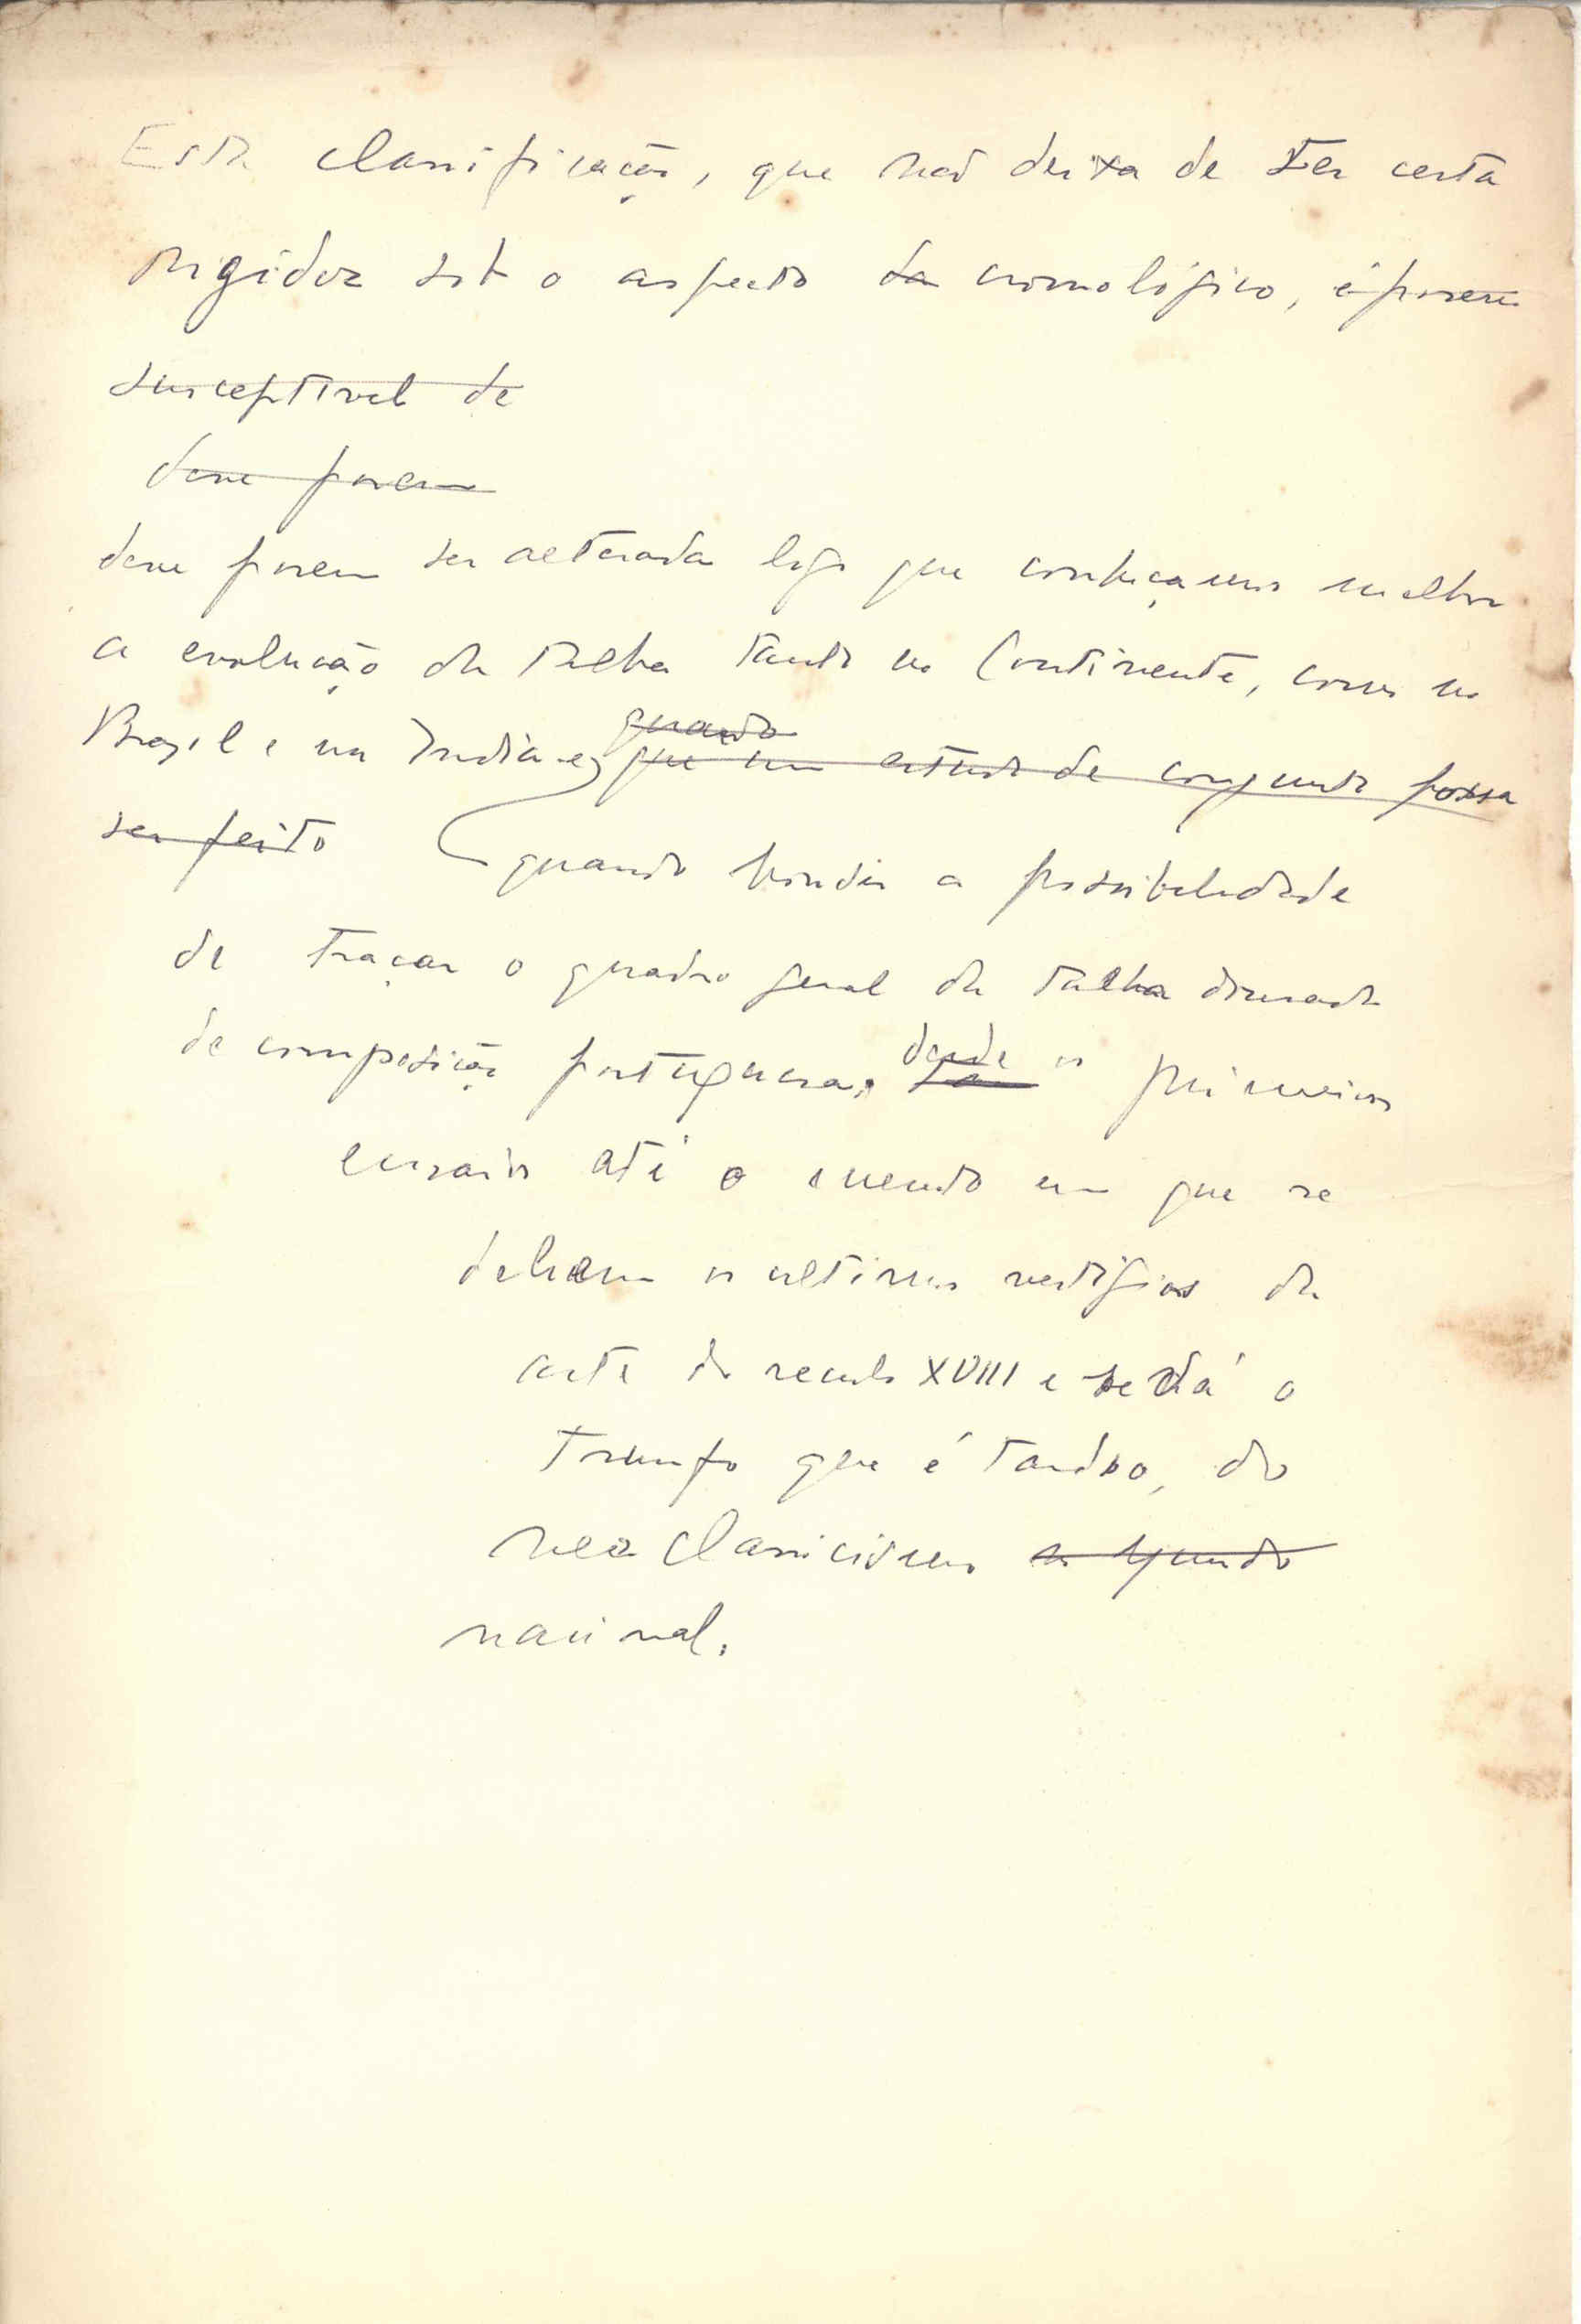 Esta classificação, que não deixa de ter certa
rigidez sob o aspecto da cronológico, é porem
susceptivel de
deve porem
deve porem ser alterada logo que conheçamos melhor
a evolução da talha tanto no Continente, como no
Brasil e na India e quando que um estudo de conjunto possa
ser feito quando houver a possibilidade
de traçar o quadro geral da talha dourada
de composição portuguesa, desde os primeiros
ensaios até o momento em que se
os ultimos vestigios da
arte do seculo XVIII e se dá o
triunfo que é tardio, do
neo classicismo
nacional.